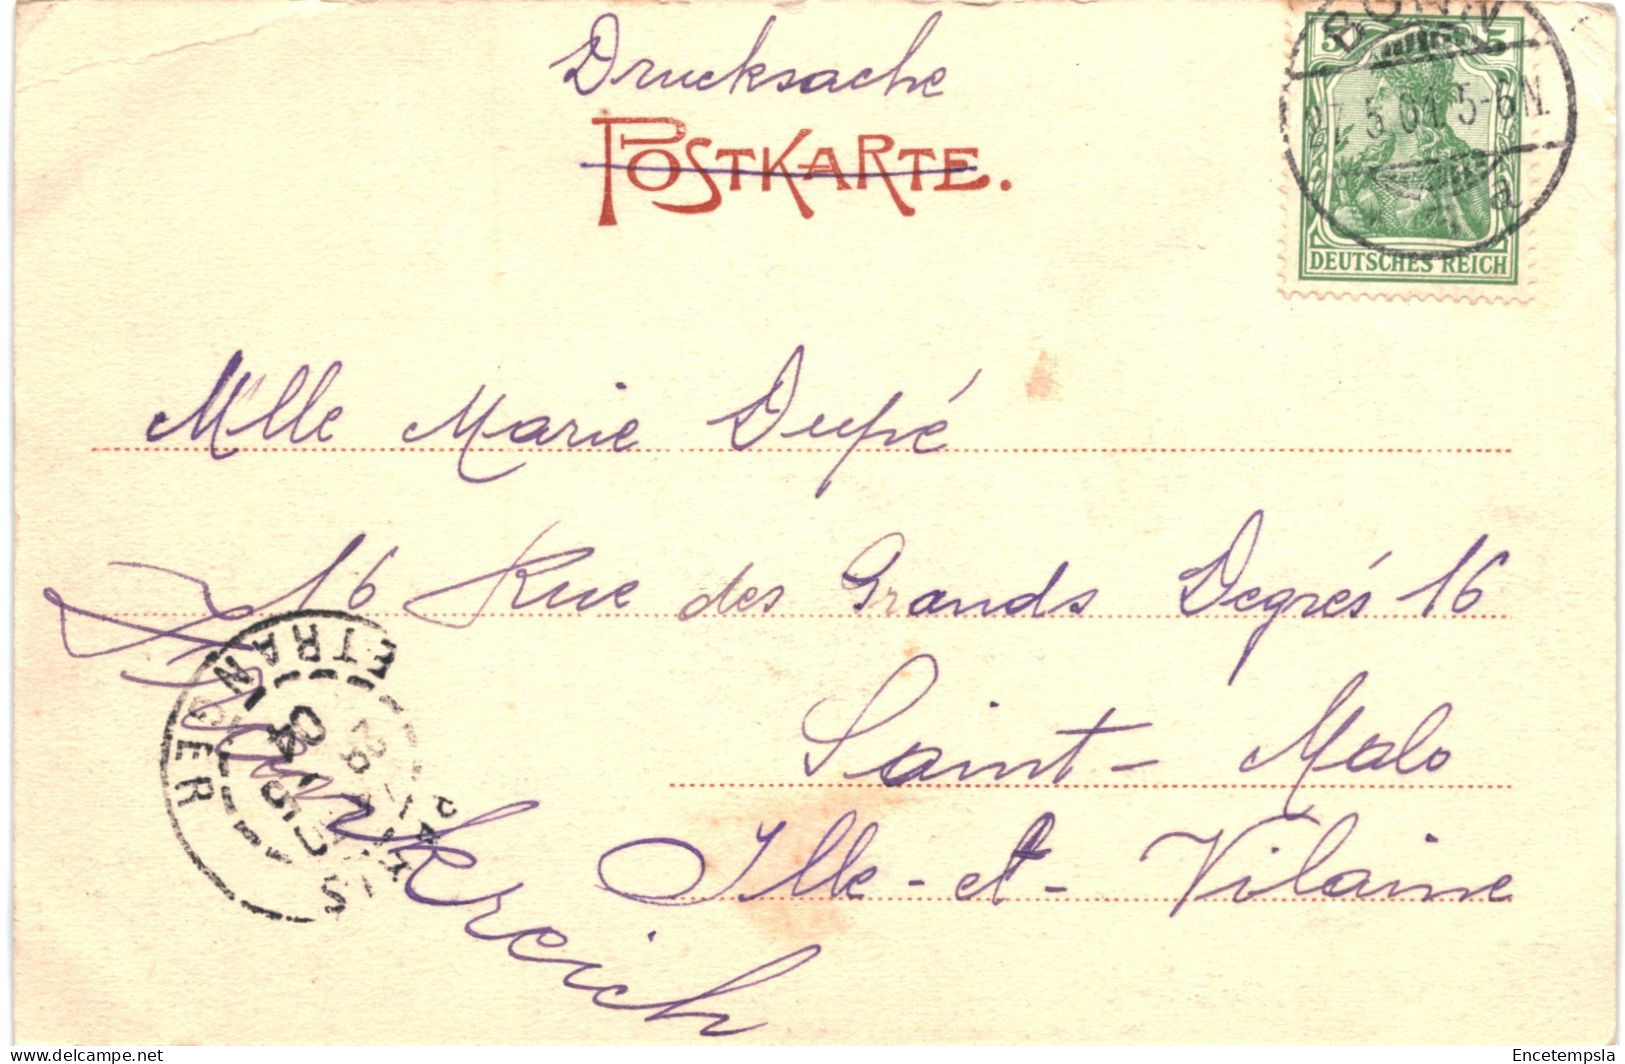 Drucksache
POSTKARTE.
5 5
BONN
27.5.04. 5-6N.
a
DEUTSCHES REICH
Mlle Marie Dupé
16 Rue des Grands Degrés 16
Saint-Malo
Ille-et-Vilaine
Frankreich
PARIS ETRANGER
04
Encetempsla